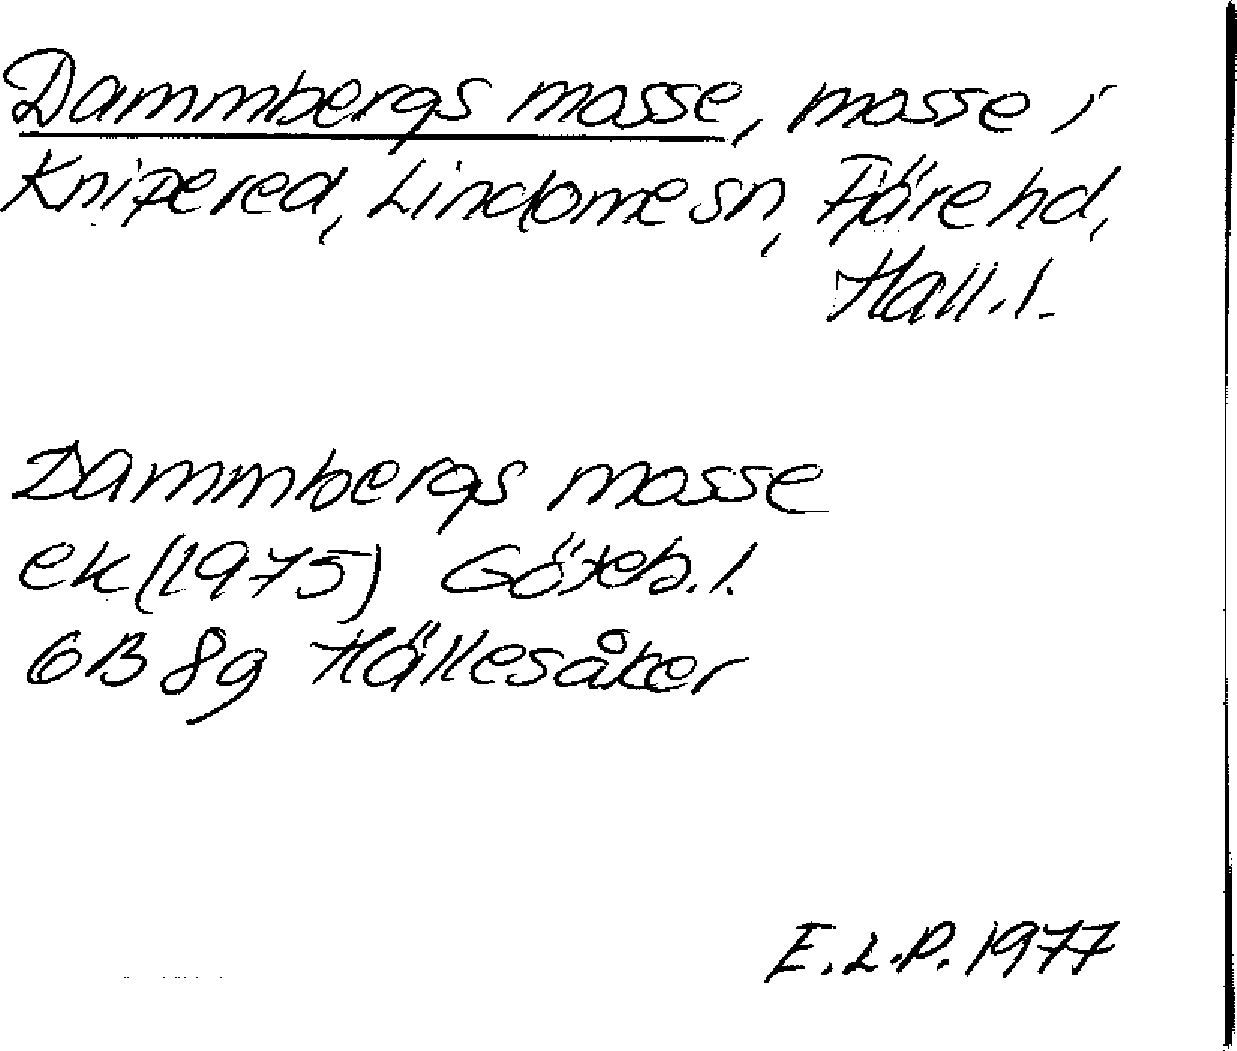 Dammbergs mosse, mosse i
Knipered, Lindome sn, Fjäre hd,
Hall.l.
Dammbergs mosse
ek(1975) Göteb.l.
6B 8g Hällesåker
E.L.P. 1977